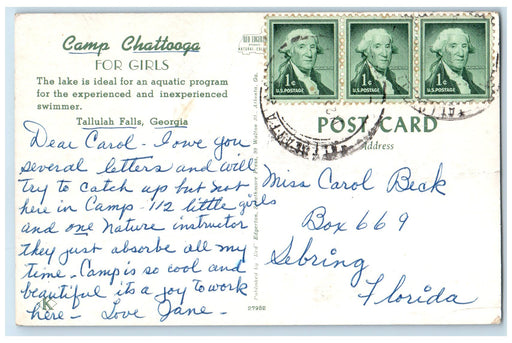 Camp Chattooga
FOR GIRLS
The lake is ideal for an aquatic program
for the experienced and inexperienced
swimmer.
Tallulah Falls, Georgia
Dear Carol - I owe you
several letters and will
try to catch up but not
here in Camp - 112 little girls
and one nature instructor
they just absorbe all my
time - Camp is so cool and
beautiful its a joy to work
here - Love Jane -
K
27982
1¢
U.S. POSTAGE
1¢
U.S. POSTAGE
1¢
U.S. POSTAGE
POST CARD
Address
Miss Carol Beak
Box 669
Sebring
Florida